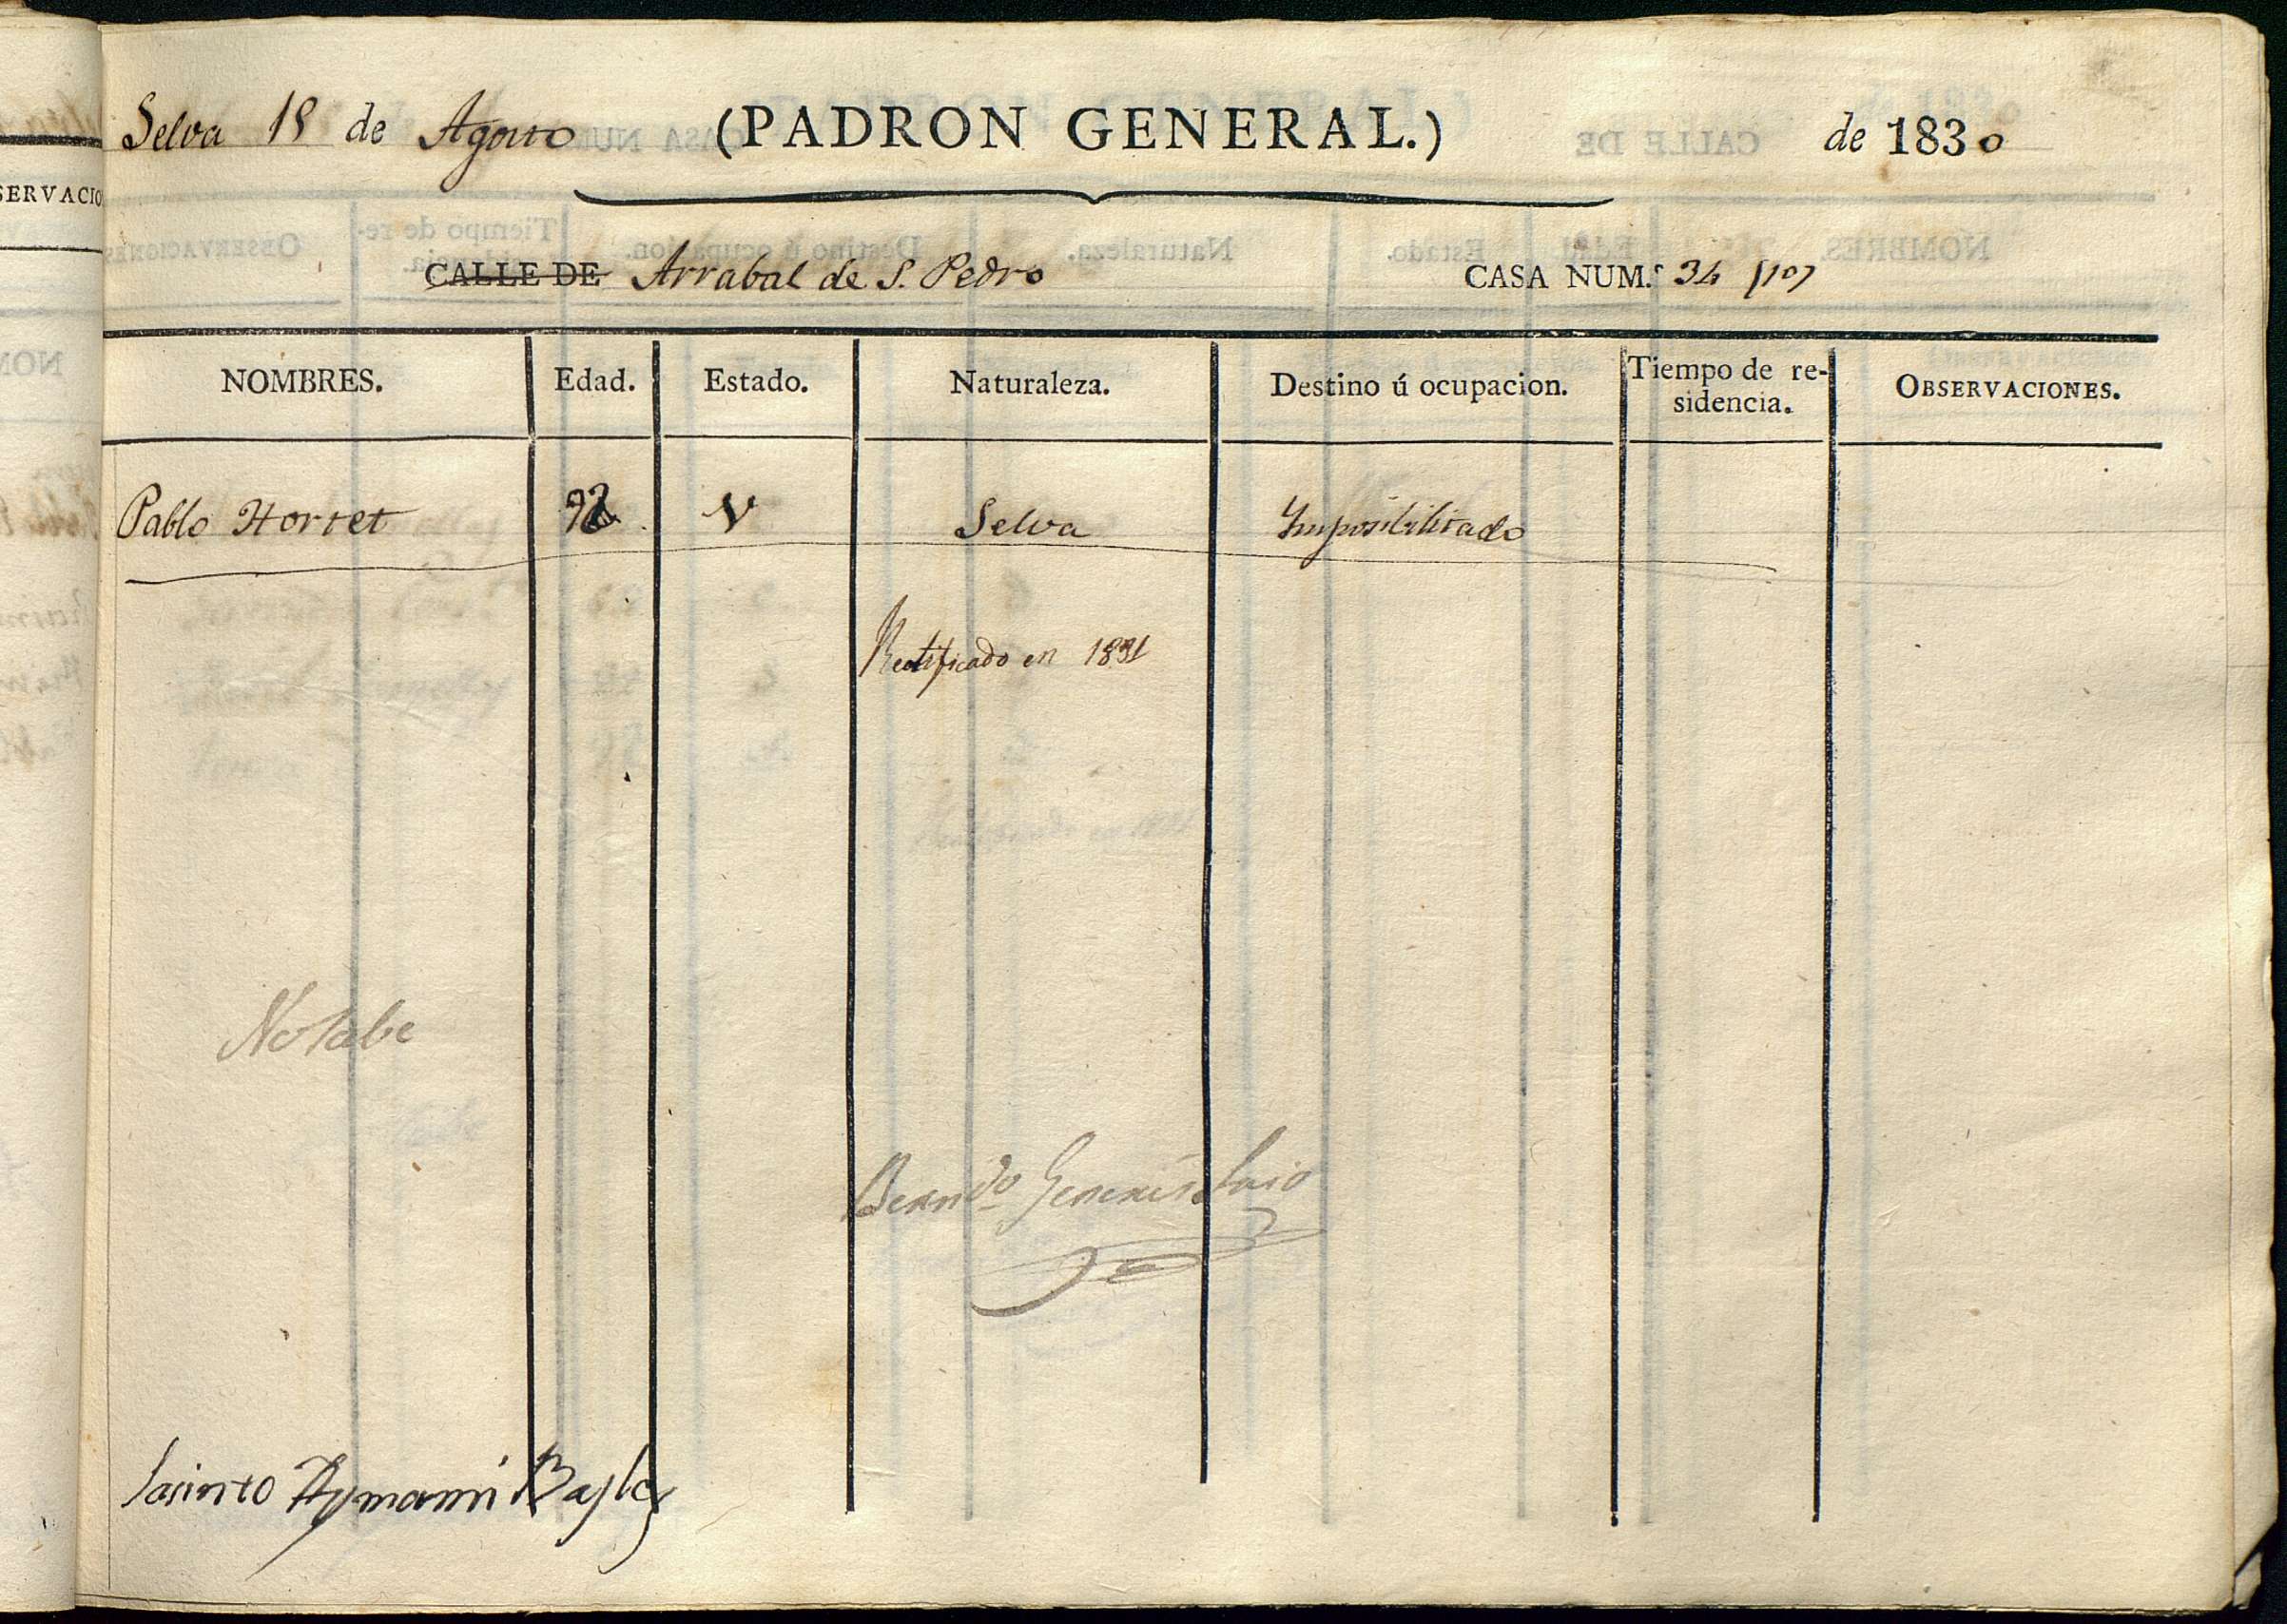 Selva 18 de Agosto (PADRON GENERAL.) de 1830
CALLE DE Arrabal de S. Pedro CASA NUM.º 34
NOMBRES. Edad. Estado. Naturaleza. Destino ú ocupacion. Tiempo de re-
sidencia. OBSERVACIONES.
Pablo Hortet V Selva Imposibilitado
Rectificado en 1831
Notabe
Bern.do
Jasinto Aymami Bayle